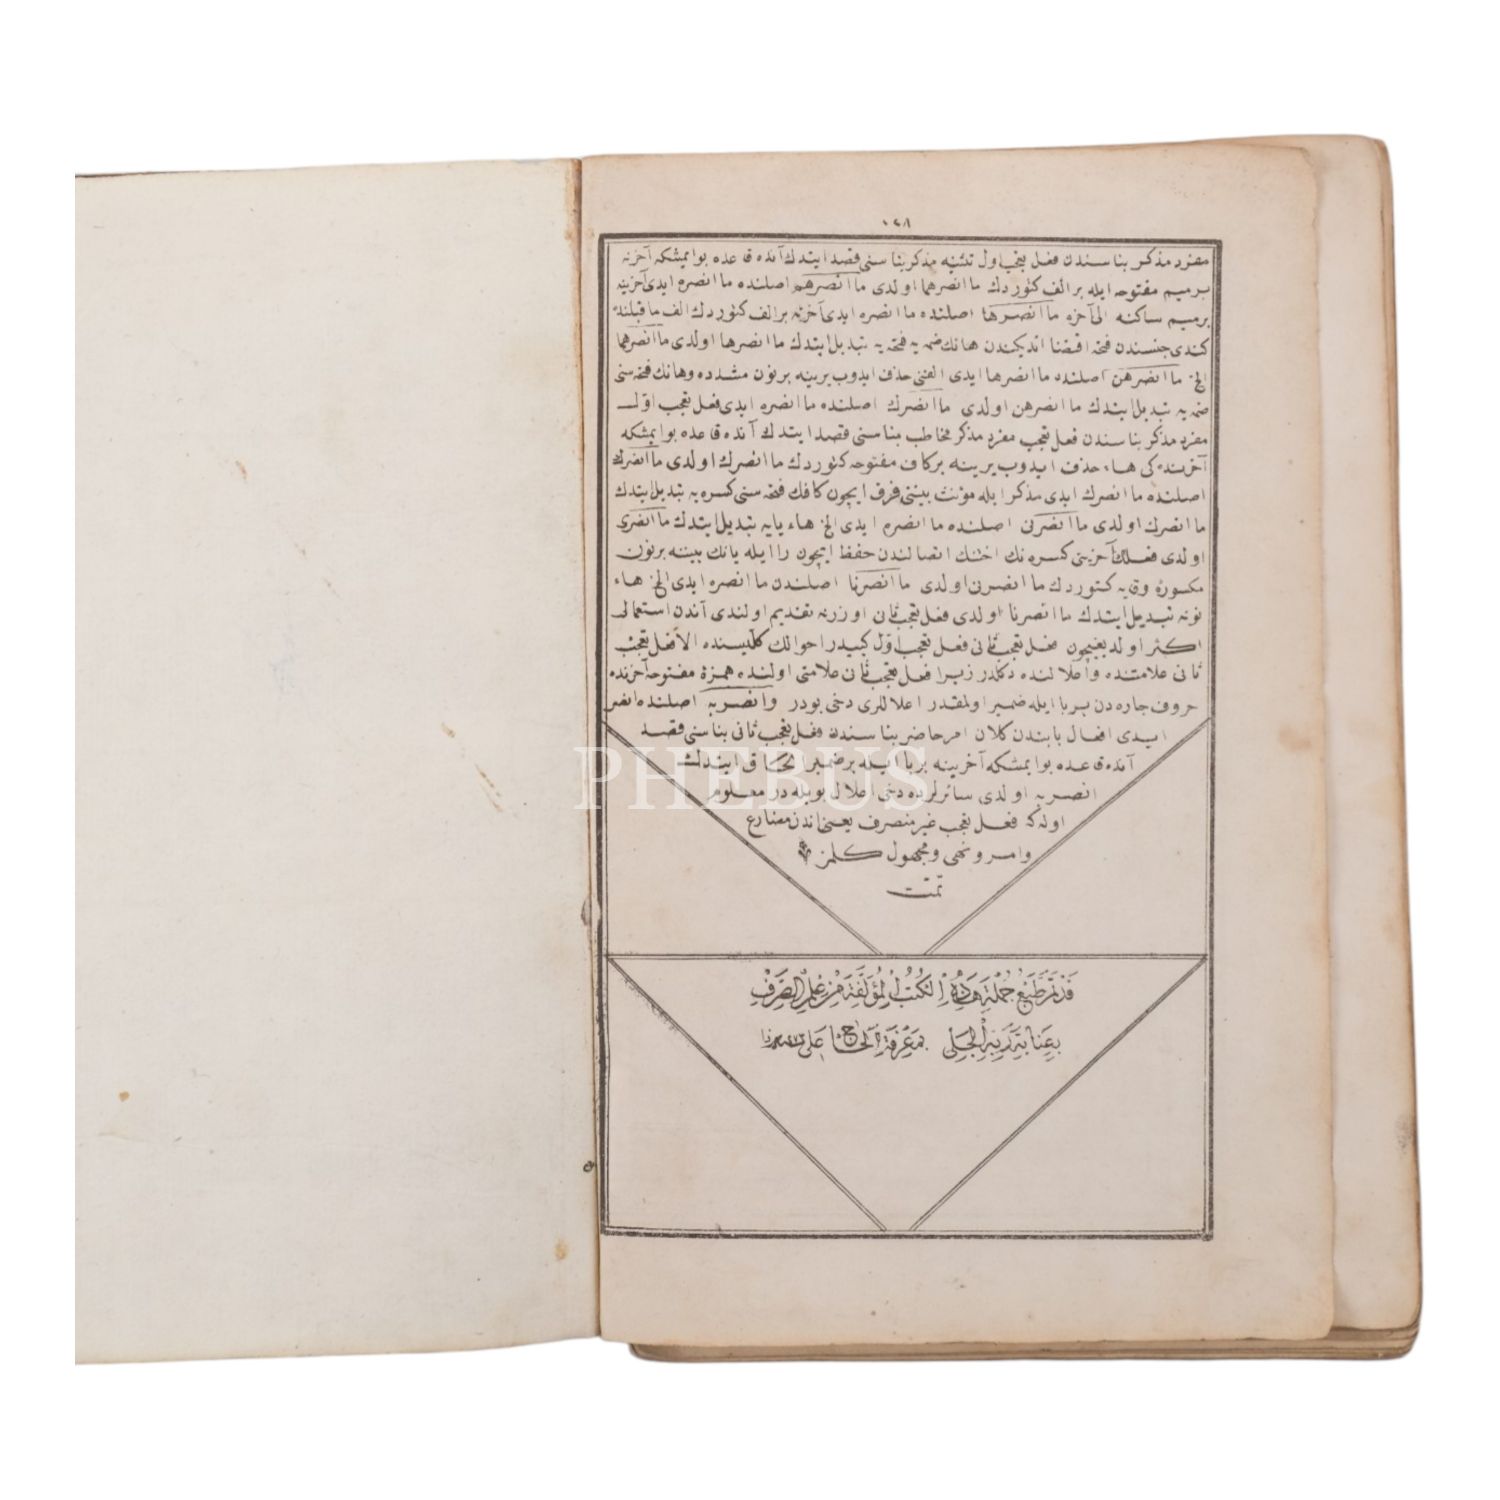 ١٢٨
مفرد مذكر بناسندن فعل تعجب اول تثنيه مذكر بناسنى قصد ايتدك آنده قاعده بوايمشكه آخرنه
برميم مفتوحه ايله برالف كتوردك ما انصرهما اولدى ما انصرهم اصلنده ما انصره ايدى آخرينه
برميم ساكنه الى آخره ما انصرها اصلنده ما انصره ايدى آخرنه برالف كتوردك الف ماقبلنده
كندى جنسندن فتحه اقتضا اتديكندن هانك ضمه يه فتحه يه تبديل ايتدك ما انصرها اولدى ما انصرهما
الخ ما انصرهن اصلنده ما انصرها ايدى الفنى حذف ايدوب يرينه برنون مشدده وهانك فتحه سنى
ضمه يه تبديل ايتدك ما انصرهن اولدى ما انصرك اصلنده ما انصره ايدى فعل تعجب اول
مفرد مذكر بناسندن فعل تعجب مفرد مذكر مخاطب بناسنى قصد ايتدك آنده قاعده بوايمشكه
آخرنده كى هاء حذف ايدوب يرينه بركاف مفتوحه كتوردك ما انصرك اولدى ما انصرك
اصلنده ما انصرك ايدى مذكر ايله مؤنث بيننى فرق ايچون كافك فتحه سنى كسره يه تبديل ايتدك
ما انصرك اولدى ما انصرنى اصلنده ما انصره ايدى الخ هاء يايه تبديل ايتدك ما انصرى
اولدى فعلك آخرينى كسره نك اختك اتصالندن حفظ ايچون را ايله يانك بيننه برنون
مكسوره وقايه كتوردك ما انصرنى اولدى ما انصرنا اصلندن ما انصره ايدى الخ هاء
نونه تبديل ايتدك ما انصرنا اولدى فعل تعجب ثانى اوزرنه تقديم اولندى آندن استعمالى
اكثر اولديغيچون فعل تعجب ثانى فعل تعجب اول كبيدر احوالك كليسنده الا فعل تعجب
ثانى علامتنده واعلالنده دكلدر زيرا فعل تعجب ثانى علامتى اولنده همزه مفتوحه آخرنده
حروف جاره دن بربا ايله ضمير اولمقدر اعلاللرى دخى بودر وانصر به اصلنده انصر
ايدى افعال بابندن كلان امر حاضر بناسندن فعل تعجب ثانى بناسنى قصد
آنده قاعده بوايمشكه آخرينه بربا ايله برضمير الحاق ايتدك
انصر به اولدى سائرلرده دخى اعلال بويله در معلوم
اوله كه فعل تعجب غير منصرف يعنى اندن مضارع
وامر ونهى ومجهول كلمز
تمت
قَدْ تَمَّ طَبْعُ جُمْلَةِ هَذِهِ الْكُتُبِ الْمُؤَلَّفَةِ مِنْ عِلْمِ الصَّرْفِ
بِعِنَايَةِ رَبِّهِ الْجَلِى بِمَعْرِفَةِ الْحَاجّ عَلِى
PHEBUS